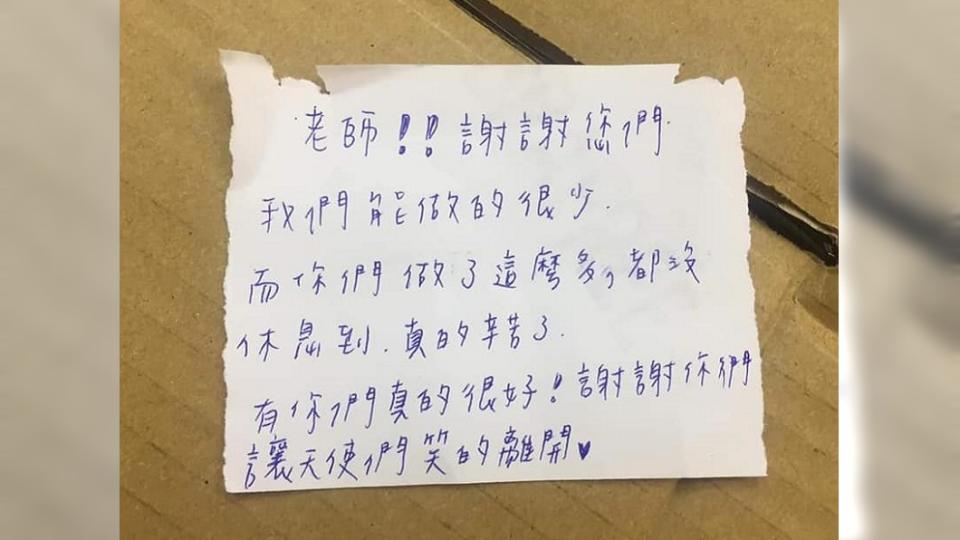 老師!! 謝謝您們
我們能做的很少.
而你們做了這麼多,都沒
休息到.真的辛苦了.
有你們真的很好!謝謝你們
讓天使們笑的離開♥